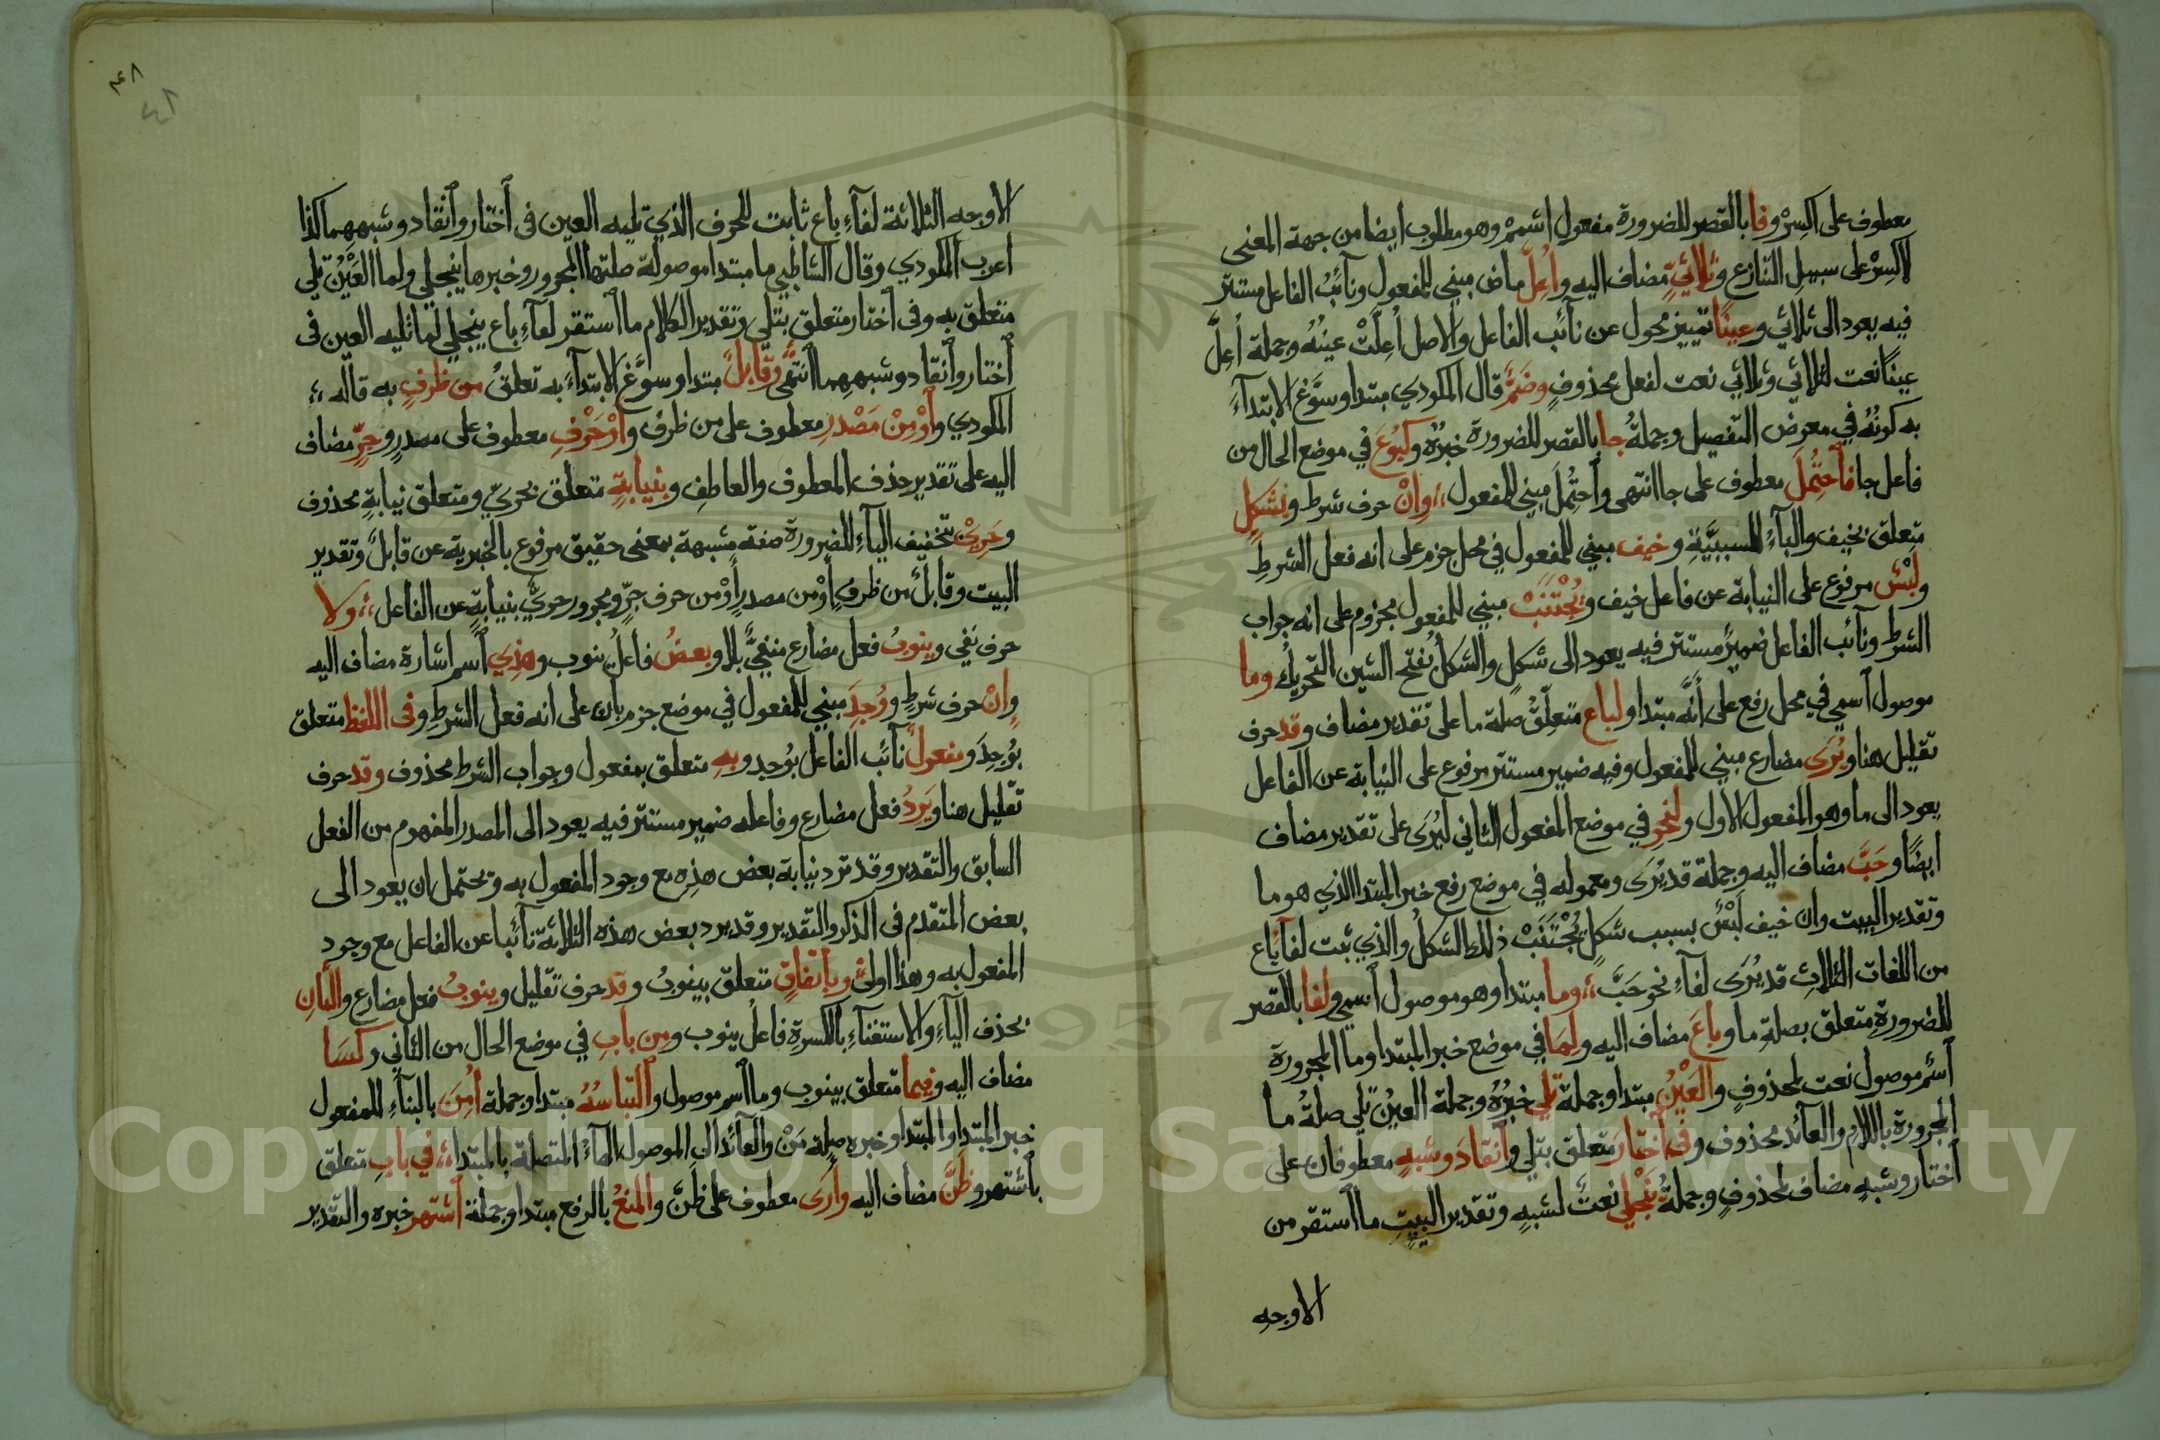 معطوف على اكسِرْ وفا بالقصر للضرورة مفعول اشممْ وهو مطلوب ايضا من جهة المعنى
لاكسِرْ على سبيل التنازع وثلاثيّ مضاف اليه واُعلّ ماض مبني للمفعول ونائب الفاعل مستتر
فيه يعود الى ثلاثي وعينًا تمييز محول عن نآئب الفاعل والاصل اُعِلّتْ عينُهُ وجملة اُعِلّ
عينًا نعت لثلاثي وثلاثي نعت لفعل محذوفٍ وضَمٌّ قال المكودي مبتدا وسوَّغ الابتدآءَ
به كونُهُ في معرض التفصيل وجملةُ جا بالقصر للضرورة خبرُهُ وكبُوعَ في موضع الحال من
فاعل جا فاَحتُمِلَ معطوف على جا انتهى واَحتُمِلَ مبني للمفعول ؛ واِنْ حرف شرط وبشكلٍ
متعلق بخيف والباءُ للسببيَّةِ وخيف مبني للمفعول في محل جزم على انه فعل الشرطِ
ولبْسٌ مرفوع على النيابة عن فاعل خيف ويُجْتَنَبْ مبني للمفعول مجزوم على انه جواب
الشرطِ ونآئب الفاعل ضميرٌ مستتر فيه يعود الى شكلٍ والشكلُ بفتح الشين التحريكُ وما
موصول اسمي في محل رفع على أنَّه مبتدا ولباع متعلّقٌ صلة ما على تقدير مضاف وقد حرف
تقليل هنا ويُرَى مضارع مبني للمفعول وفيه ضمير مستتر مرفوع على النيابة عن الفاعل
يعود الى ما وهو المفعول الاول ولنحوِ في موضع المفعول الثاني ليُرَى على تقدير مضاف
ايضًا وحَبَّ مضاف اليه وجملة قد يُرَى ومعموله في موضع رفع خبر المبتدا الذي هو ما
وتقدير البيت وان خيف لَبْسٌ بسبب شكلٍ يُجْتَنَبْ ذلك الشكلُ والذي ثبت لفآءِ باع
من اللغات الثلاثِ قد يُرَى لفآءِ نحو حَبَّ ؛ وما مبتدا وهو موصول اسمي ولفا بالقصر
للضرورة متعلق بصلةِ ما وباعَ مضاف اليه ولِمَا في موضع خبر المبتدا وما المجرورة
اَسْمٌ موصول نعت لمحذوفٍ والعَيْنُ مبتدا وجملة تَلي خبرُهُ وجملة العينُ تلي صلةُ ما
المجرورة باللام والعآئد محذوف وفى اَختارَ متعلق بتلي واَنقادَ وشبهٍ معطوفان على
اَختار وشبهٍ مضاف لمحذوفٍ وجملةُ يَنْجَلي نعتٌ لشبهٍ وتقدير البيتِ ما اَستقر من
الاوجه
٤٨
٤٨
الاوجه الثلاثة لفآءِ باع ثابت للحرف الذي تليه العين فى اَختار واَنقاد وشبههما كذا
اعرب المكودي وقال الشاطبي ما مبتدا موصولة صلتها المجرور وخبرها ينجلي ولما العَيْنُ تلي
متعلق به وفى اختار متعلق بتلي وتقدير الكلام ما اَستقر لفآءِ باع ينجلي لما تليه العين فى
اَختار واَنقاد وشبههما انتهىَ وقابلٌ مبتدا وسوَّغ الابتدآءَ به تعلقُ من ظرفٍ به قاله ؛
المكودي واَوْ مِنْ مَصْدرٍ معطوف على من ظرف واَوْ حَرْفِ معطوف على مصدرٍ وجرٍّ مضاف
اليه على تقدير حذف المعطوف والعاطف وبنيابةٍ متعلق بحريّ ومتعلق نيابةٍ محذوف
وحَرِىْ بتخفيف اليآءِ للضرورة صفة مشبهة بمعنى حقيق مرفوع بالخبرية عن قابلٌ وتقدير
البيت وقابلٌ من ظرفٍ أوْ من مصدرٍ أوْ من حرف جرٍّ ومجرور حريٌّ بنيابةٍ عن الفاعل ؛ ولا
حرف نفي وينوبُ فعل مضارع منفيٌّ بلا وبعضُ فاعلُ ينوب وهذي اَسم اشارة مضاف اليه
وانْ حرف شرطٍ ووُجِدَ مبني للمفعول في موضع جزم بان على انه فعل الشرطِ وفى اللفظِ متعلق
بوُجِدَ ومفعولٌ نآئب الفاعل بوُجِد وبهِ متعلق بمفعول وجواب الشرط محذوف وقد حرف
تقليل هنا ويَردُ فعل مضارع وفاعله ضمير مستتر فيه يعود الى المصدر المفهوم من الفعل
السابق والتقدير وقد ترد نيابة بعض هذِه مع وجود المفعول به ويحتمل ان يعود الى
بعض المتقدم فى الذكر والتقدير وقد يرد بعض هذه الثلاثة نآئبا عن الفاعل مع وجود
المفعول به وهذا اولىَ وباَتفاقٍ متعلق بينوبُ وقد حرف تقليل وينوبُ فعل مضارع والثانِ
بحذف اليآءِ والاستغنآءِ بالكسرةِ فاعلُ ينوب ومِن بابِ في موضع الحال من الثاني وكسَا
مضاف اليه وفيما متعلق بينوب وما اسم موصول واَلتباسُهُ مبتدا وجملة أُمِنَ بالبنآءِ للمفعول
خبر المبتدا والمبتدا وخبره صلة مَنْ والعآئد الى الموصول الهآءُ المتصلة بالمبتداءِ ؛ في بابِ متعلق
باَشتهر وظَنَّ مضاف اليه وأرَى معطوف على ظَنَّ والمنعُ بالرفع مبتدا وجملة اَشتهر خبره والتقدير